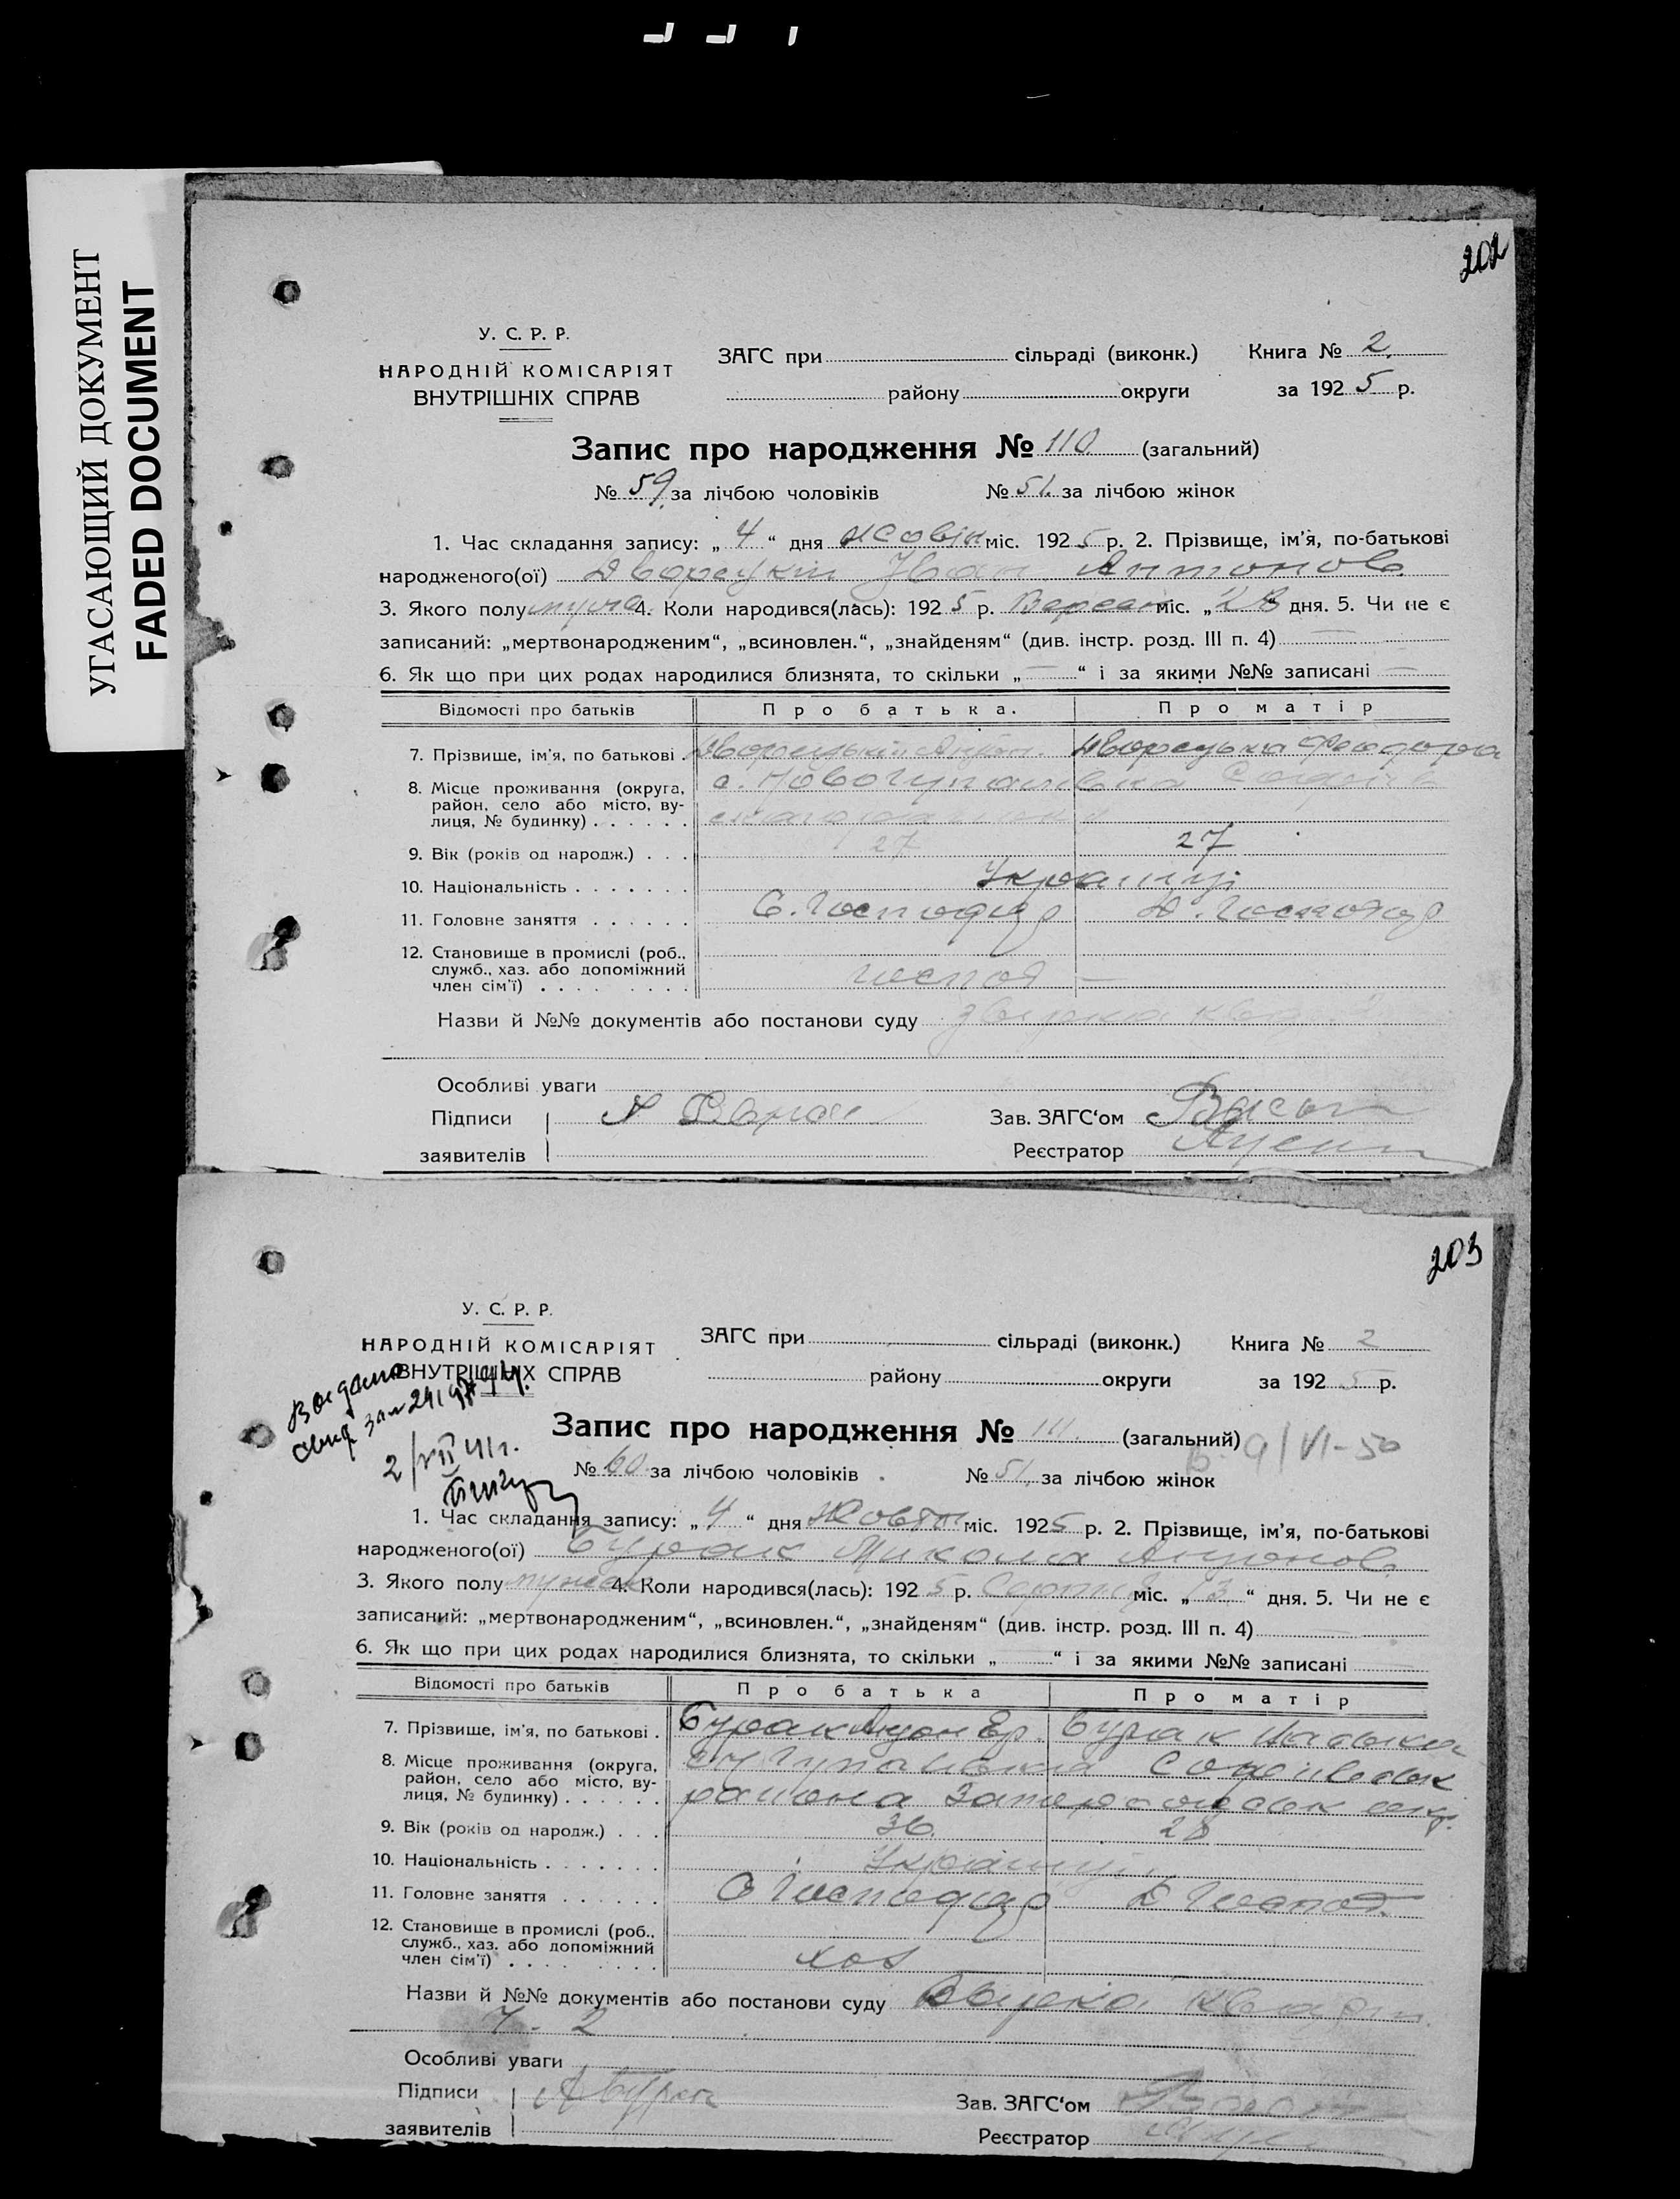 УГАСАЮЩИЙ ДОКУМЕНТ
FADED DOCUMENT
202
У. С. Р. Р.
НАРОДНІЙ КОМІСАРІЯТ
ВНУТРІШНІХ СПРАВ
ЗАГС при сільраді (виконк.) Книга № 2.
району округи за 1925 р.
Запис про народження № 110 (загальний)
№ 59 за лічбою чоловіків № 51. за лічбою жінок
1. Час складання запису: „4“ дня жовтн міс. 1925 р. 2. Прізвище, ім'я, по-батькові
народженого(ої) Іван Антонов
3. Якого полу 4. Коли народився(лась): 1925 р. Вересн міс. „28 дня. 5. Чи не є
записаний: „мертвонародженим“, „всиновлен.“, „знайденям“ (див. інстр. розд. III п. 4)
6. Як що при цих родах народилися близнята, то скільки „ — “ і за якими №№ записані —
Відомості про батьків Про батька. Про матір
7. Прізвище, ім'я, по батькові . Дворецька Феодора
8. Місце проживання (округа, с. Новогупалівка
район, село або місто, ву-
лиця, № будинку) . . . . . .
9. Вік (років од народж.) . . . 27 27
10. Національність . . . . . . . Українці
11. Головне заняття . . . . . . С. Господар Д. Господар
12. Становище в промислі (роб.,
служб., хаз. або допоміжний
член сім'ї) . . . . . . . . господ —
Назви й №№ документів або постанови суду
Особливі уваги
Підписи Зав. ЗАГС‘ом
заявителів Реєстратор
203
У. С. Р. Р.
НАРОДНІЙ КОМІСАРІЯТ
ВНУТРІШНІХ СПРАВ
ЗАГС при сільраді (виконк.) Книга № 2
району округи за 1925 р.
Выдано
свид. за №
2/VII 41 г.
Запис про народження № 111. (загальний)
В. 9/VI-50
№ 60 за лічбою чоловіків № 51. за лічбою жінок
1. Час складання запису: „4“ дня Жовтн міс. 1925 р. 2. Прізвище, ім'я, по-батькові
народженого(ої) Бурак Микола
3. Якого полу 4. Коли народився(лась): 1925 р. міс. „13“ дня. 5. Чи не є
записаний: „мертвонародженим“, „всиновлен.“, „знайденям“ (див. інстр. розд. III п. 4)
6. Як що при цих родах народилися близнята, то скільки „ “ і за якими №№ записані
Відомості про батьків Про батька Про матір
7. Прізвище, ім'я, по батькові . Бурак Бурак
8. Місце проживання (округа,
район, село або місто, ву-
лиця, № будинку) . . . . . . района
9. Вік (років од народж.) . . . 36. 28
10. Національність . . . . . . . Українці
11. Головне заняття . . . . . . С Господар Д Господ.
12. Становище в промислі (роб.,
служб., хаз. або допоміжний
член сім'ї) . . . . . . . .
Назви й №№ документів або постанови суду
Особливі уваги
Підписи А Бурак Зав. ЗАГС‘ом
заявителів Реєстратор